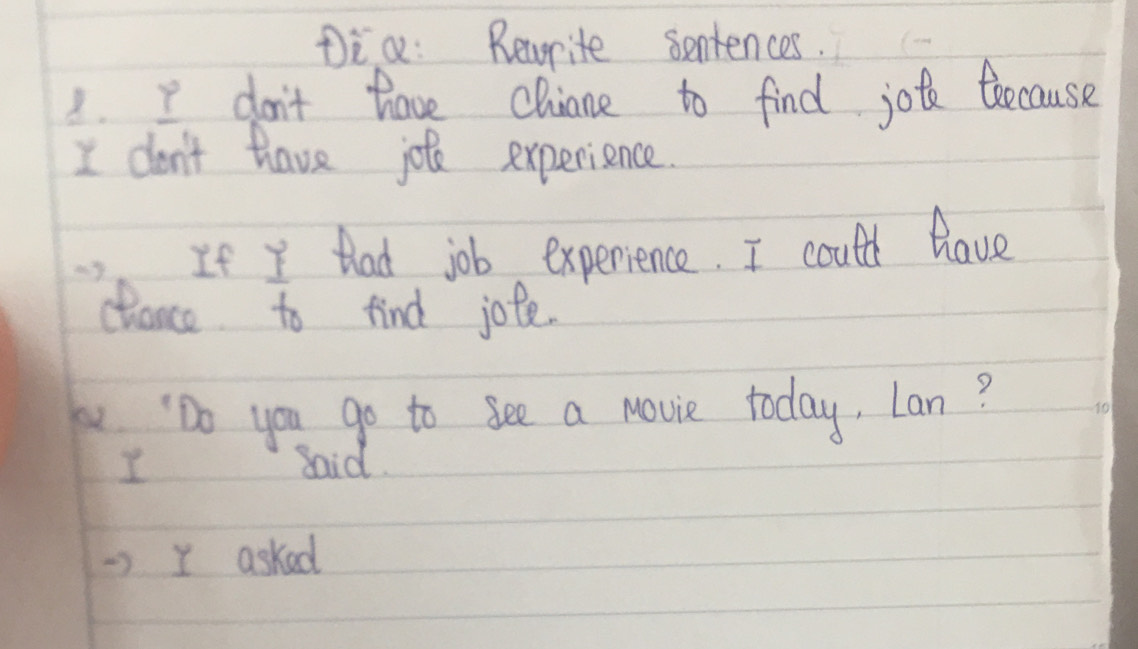 Đề a: Rewrite sentences.
1. I don't have Chiane to find job because
I don't have job experience.
-> If I had job experience. I could have
chance to find job.
2. "Do you go to see a movie today, Lan ?
I said.
-> I asked
10